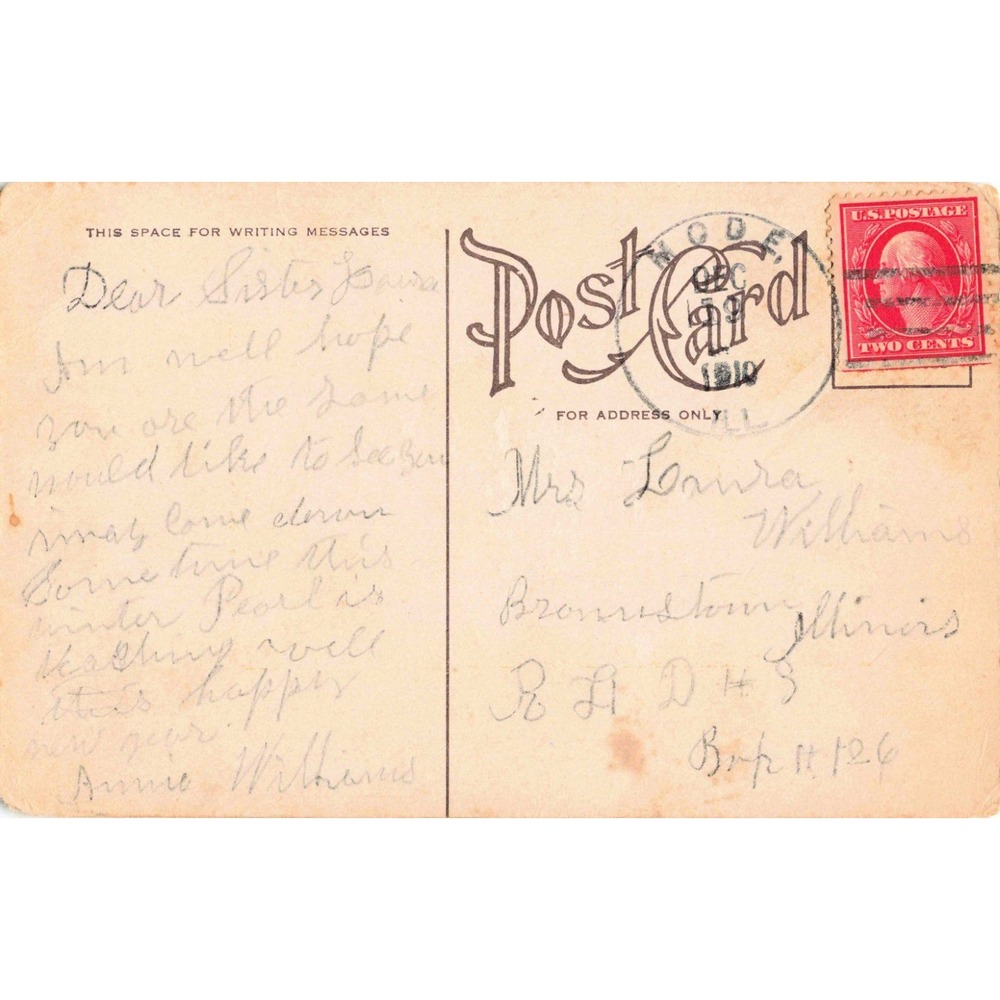 THIS SPACE FOR WRITING MESSAGES
Dear Sister Laura
Am well hope
you are the same
would like to see you
may come down
Some time this
winter Pearl is
teaching well
this happy
new year
Annie Williams
Post Card
FOR ADDRESS ONLY
MODE,
DEC
1910
ILL.
U.S. POSTAGE
TWO CENTS
Mrs Laura
Williams
Brownstown
Illinois
R D # 3
Box # 126